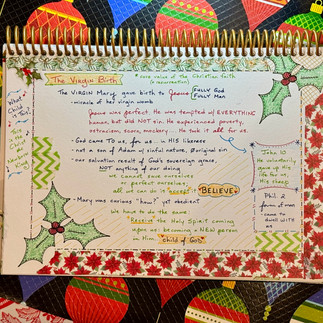 The Virgin Birth
* core value of the Christian faith
(& resurrection)
The VIRGIN Mary gave birth to Jesus FULLY God
FULLY Man
- miracle of her virgin womb
Jesus was perfect. He was tempted by EVERYTHING
human, but did NOT sin. He experienced poverty,
ostracism, scorn, mockery... He took it all for us.
- God came TO us, for us... in HIS likeness
- not a son of Adam w/ sinful nature, original sin
- our salvation result of God's sovereign grace,
NOT anything of our doing
we cannot save ourselves
or perfect ourselves,
all we can do is accept & BELIEVE
- Mary was curious "how?" yet obedient
We have to do the same:
"Receive" the Holy Spirit coming
upon us: becoming a NEW person
in Him "child of God"
What
Child
is This?
This is
Christ
the
Newborn
King
John 10
He voluntarily
gave up His
life for us,
His sheep
Phil. 2
came to